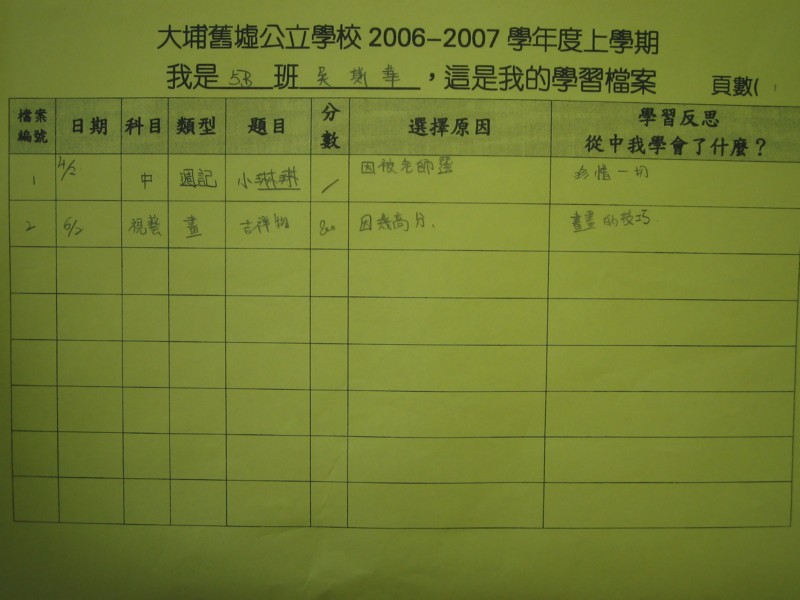 大埔舊墟公立學校 2006–2007 學年度上學期
我是 5B 班 吳 華 ，這是我的學習檔案 頁數( 1
檔案編號 日期 科目 類型 題目 分數 選擇原因 學習反思 從中我學會了什麼？
1 4/2 中 週記 小琳琳 / 因被老師 珍惜一切
2 6/2 視藝 畫 吉祥物 80 因幾高分. 畫畫的技巧.